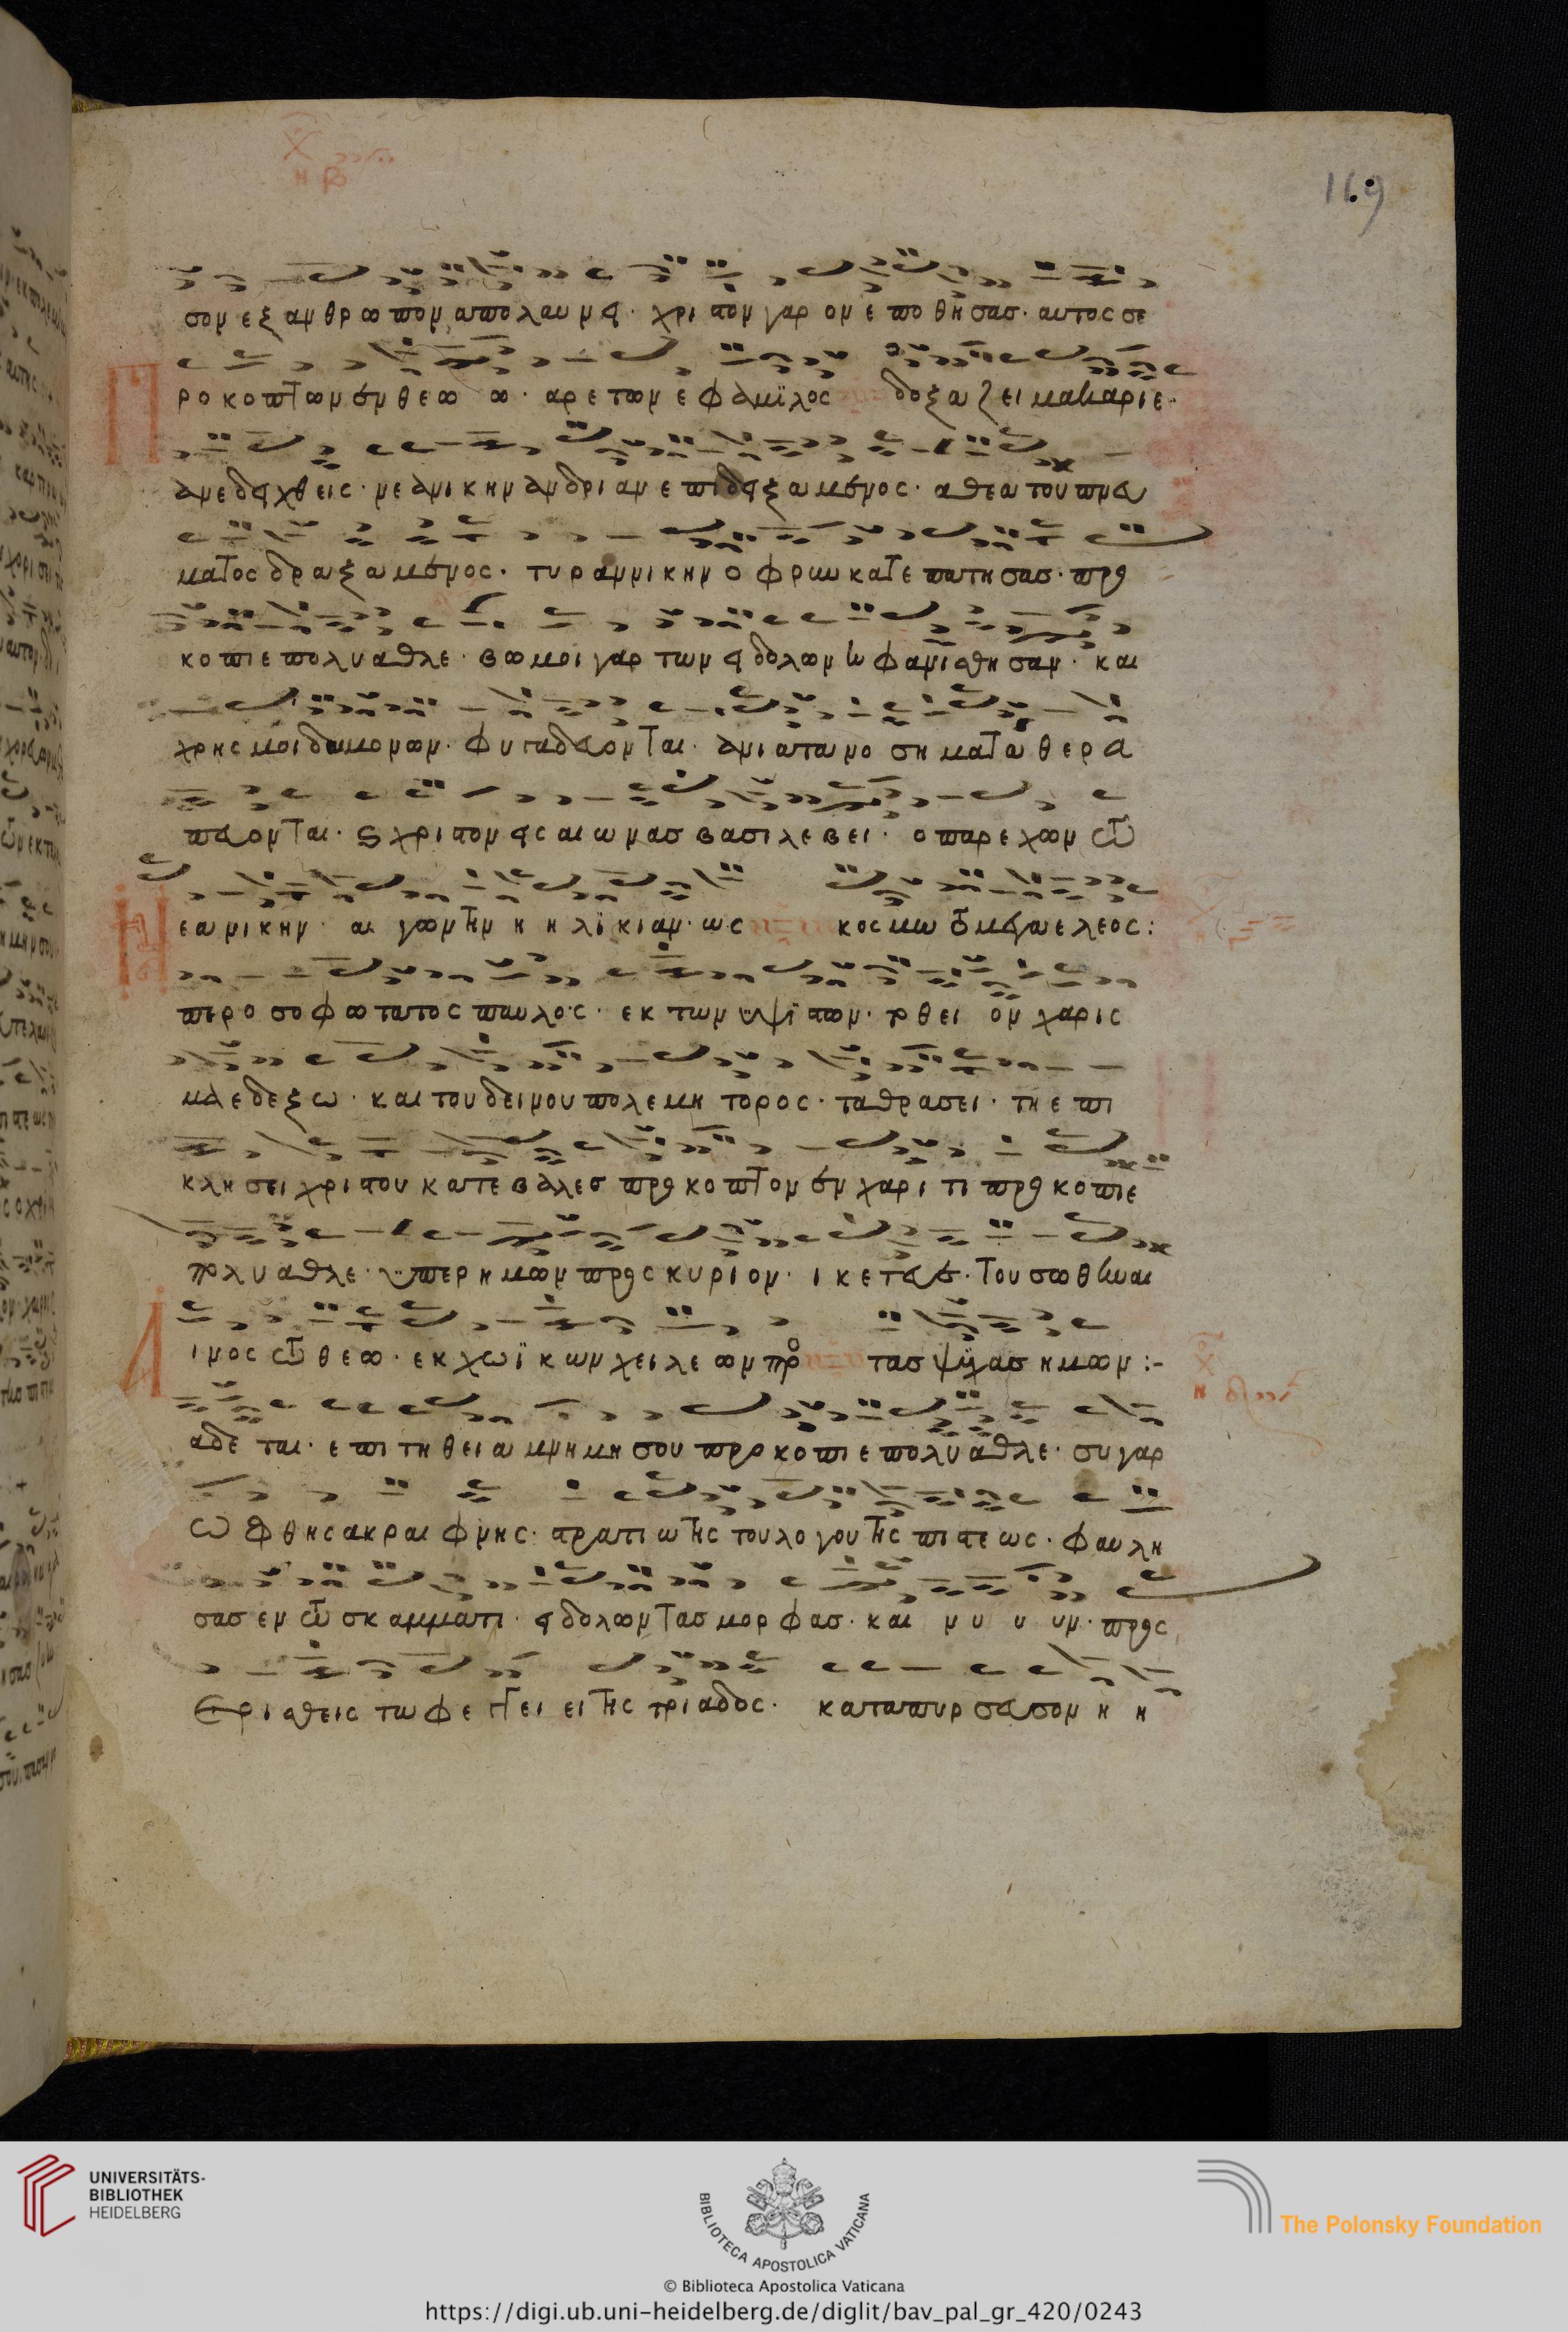 169
σον εξ ανθρωπον απολαυνει· χριστον γαρ ον εποθησασ· αυτος σε
Προκοπτων εν θεω ω· αρετων εφαμϊλος δοξαζει μακαριε·
ανεδειχθεις· νεανικην ανδριαν επιδειξαμενος· αθεα του πνευ
ματος δραξαμενος· τυραννικην οφρυν κατεπατησασ· προ
κοπιε πολυαθλε· βωμοι γαρ των ειδολων ηφανισθησαν· και
χρησμοι δαιμονων· φυγαδευονται· ανιατα νοσηματα θερα
πευονται· χριστον εις αιωνασ βασιλεβει· ο παρεχων τω
Νεανικην αγων την η ηλϊκιαν· ως κοσμω το μεγα ελεος:
προσοφωτατος παυλος· εκ των υψϊστων· ορθει ον χαρις
με εδεξω· και του δεινου πολεμητορος· τα θρασει· τη επι
κλησει χριστου κατεβαλεσ προκοπτον εν χαριτι προκοπιε
πολυαθλε· ϋπερ ημων προς κυριον· ικετευε· του σωθηναι
Αινος τω θεω· εκ χοϊκων χειλεων προ τας ψυχασ ημων :-
αδεται· επι τη θεια μνημη σου προκοπιε πολυαθλε· συ γαρ
ωφθης ακραιφνης· στρατιωτης του λογου της πιστεως· φαυλη
σασ εν τω σκαμματι· ειδολων τασ μορφασ· και νυ υ υν· προς
Ερισθεις τω φεγγει ει της τριαδος· καταπυρσευσον η η
UNIVERSITÄTS-
BIBLIOTHEK
HEIDELBERG
BIBLIOTECA APOSTOLICA VATICANA
The Polonsky Foundation
© Biblioteca Apostolica Vaticana
https://digi.ub.uni-heidelberg.de/diglit/bav_pal_gr_420/0243